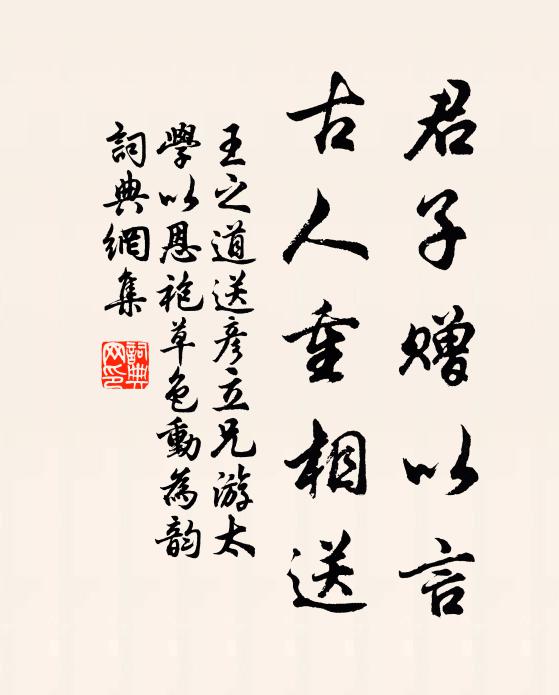 君子赠以言
古人重相送
王之道送彦立兄游太
學以恩袍草色動為韵
詞典網集
詞典
网印